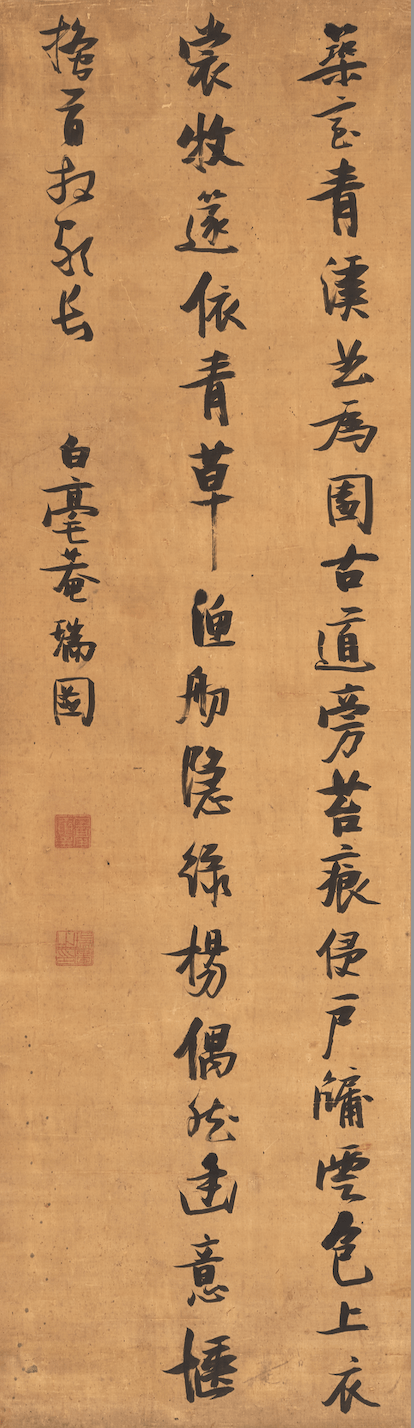 築室青溪為園古道旁苔痕侵戶牖雲色上衣
裳牧篴依青草漁舠隱綠楊偶然幽意愜
搔首放歌長
白毫菴瑞圖